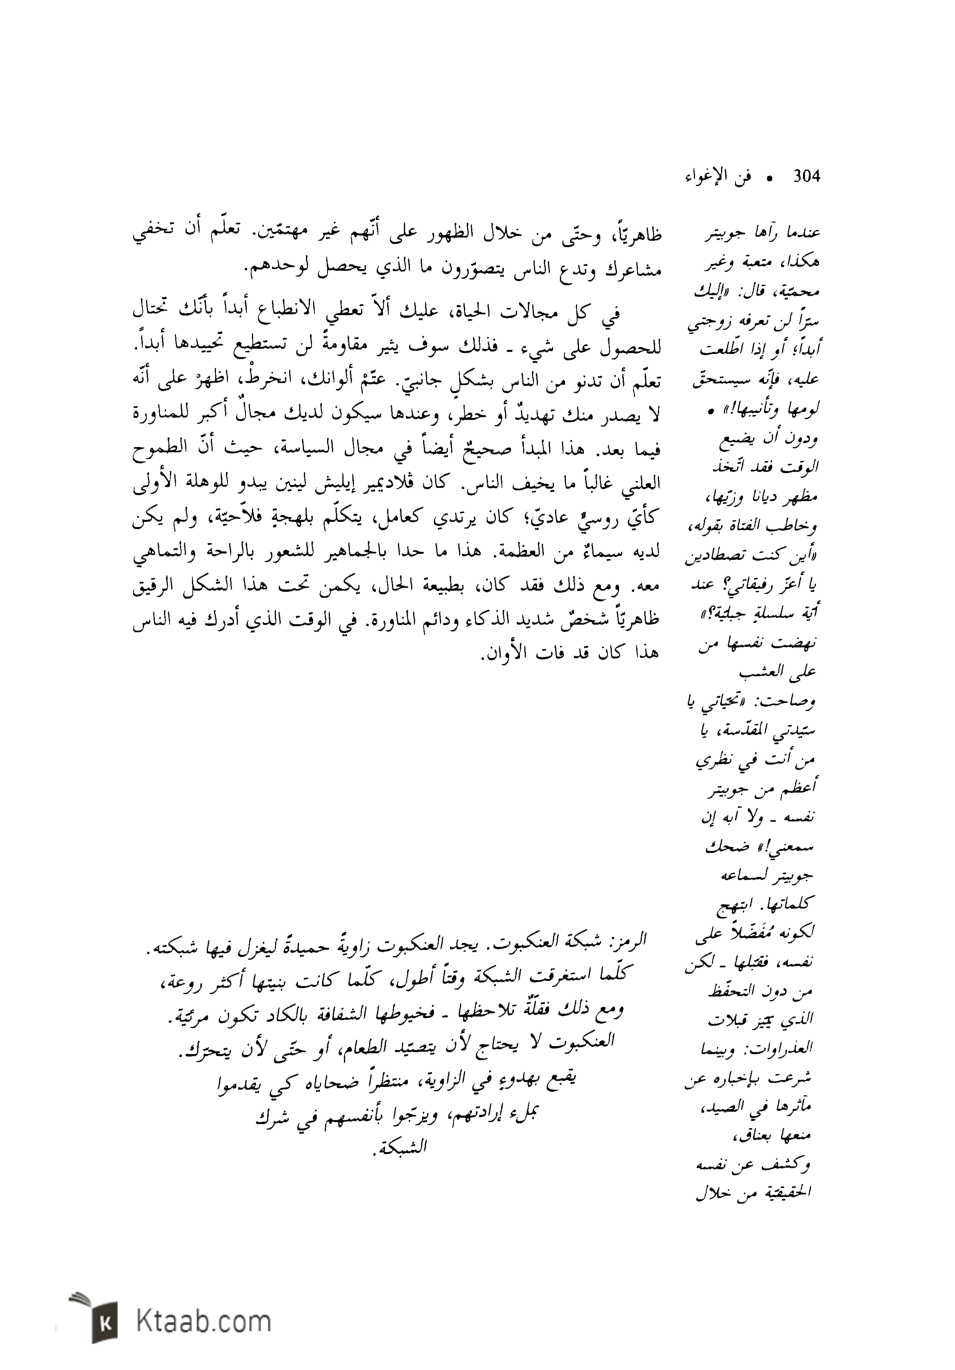 304 • فن الإغواء
ظاهريّاً، وحتّى من خلال الظهور على أنّهم غير مهتمّين. تعلّم أن تخفي
مشاعرك وتدع الناس يتصوّرون ما الذي يحصل لوحدهم.
في كل مجالات الحياة، عليك ألاّ تعطي الانطباع أبداً بأنّك تحتال
للحصول على شيء ـ فذلك سوف يثير مقاومةً لن تستطيع تحييدها أبداً.
تعلّم أن تدنو من الناس بشكلٍ جانبيّ. عتّمْ ألوانك، انخرطْ، اظهرْ على أنّه
لا يصدر منك تهديدٌ أو خطر، وعندها سيكون لديك مجالٌ أكبر للمناورة
فيما بعد. هذا المبدأ صحيحٌ أيضاً في مجال السياسة، حيث أنّ الطموح
العلني غالباً ما يخيف الناس. كان ڤلاديمير إيليش لينين يبدو للوهلة الأولى
كأيّ روسيٍّ عاديّ؛ كان يرتدي كعامل، يتكلّم بلهجةٍ فلاّحيّة، ولم يكن
لديه سيماءٌ من العظمة. هذا ما حدا بالجماهير للشعور بالراحة والتماهي
معه. ومع ذلك فقد كان، بطبيعة الحال، يكمن تحت هذا الشكل الرقيق
ظاهريّاً شخصٌ شديد الذكاء ودائم المناورة. في الوقت الذي أدرك فيه الناس
هذا كان قد فات الأوان.
الرمز: شبكة العنكبوت. يجد العنكبوت زاويةً حميدةً ليغزل فيها شبكته.
كلّما استغرقت الشبكة وقتاً أطول، كلّما كانت بنيتها أكثر روعة،
ومع ذلك فقلّةٌ تلاحظها ـ فخيوطها الشفافة بالكاد تكون مرئية.
العنكبوت لا يحتاج لأن يتصيّد الطعام، أو حتّى لأن يتحرّك.
يقبع بهدوءٍ في الزاوية، منتظراً ضحاياه كي يقدموا
بملء إرادتهم، ويزجّوا بأنفسهم في شرك
الشبكة.
عندما رآها جوبيتر
هكذا، متعبة وغير
محميّة، قال: «إليك
سرّاً لن تعرفه زوجتي
أبداً؛ أو إذا اطّلعت
عليه، فإنّه سيستحقّ
لومها وتأنيبها!» •
ودون أن يضيع
الوقت فقد اتّخذ
مظهر ديانا وزيّها،
وخاطب الفتاة بقوله،
«أين كنت تصطادين
يا أعزّ رفيقاتي؟ عند
أيّة سلسلةٍ جبليّة؟»
نهضت نفسها من
على العشب
وصاحت: «تحيّاتي يا
سيّدتي المقدّسة، يا
من أنت في نظري
أعظم من جوبيتر
نفسه ـ ولا آبه إن
سمعني!» ضحك
جوبيتر لسماعه
كلماتها. ابتهج
لكونه مُفَضّلاً على
نفسه، فقبّلها ـ لكن
من دون التحفّظ
الذي يميّز قبلات
العذراوات: وبينما
شرعت بإخباره عن
مآثرها في الصيد،
منعها بعناق،
وكشف عن نفسه
الحقيقيّة من خلال
Ktaab.com